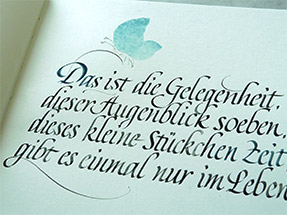 Das ist die Gelegenheit,
dieser Augenblick soeben,
dieses kleine Stückchen Zeit
gibt es einmal nur im Leben